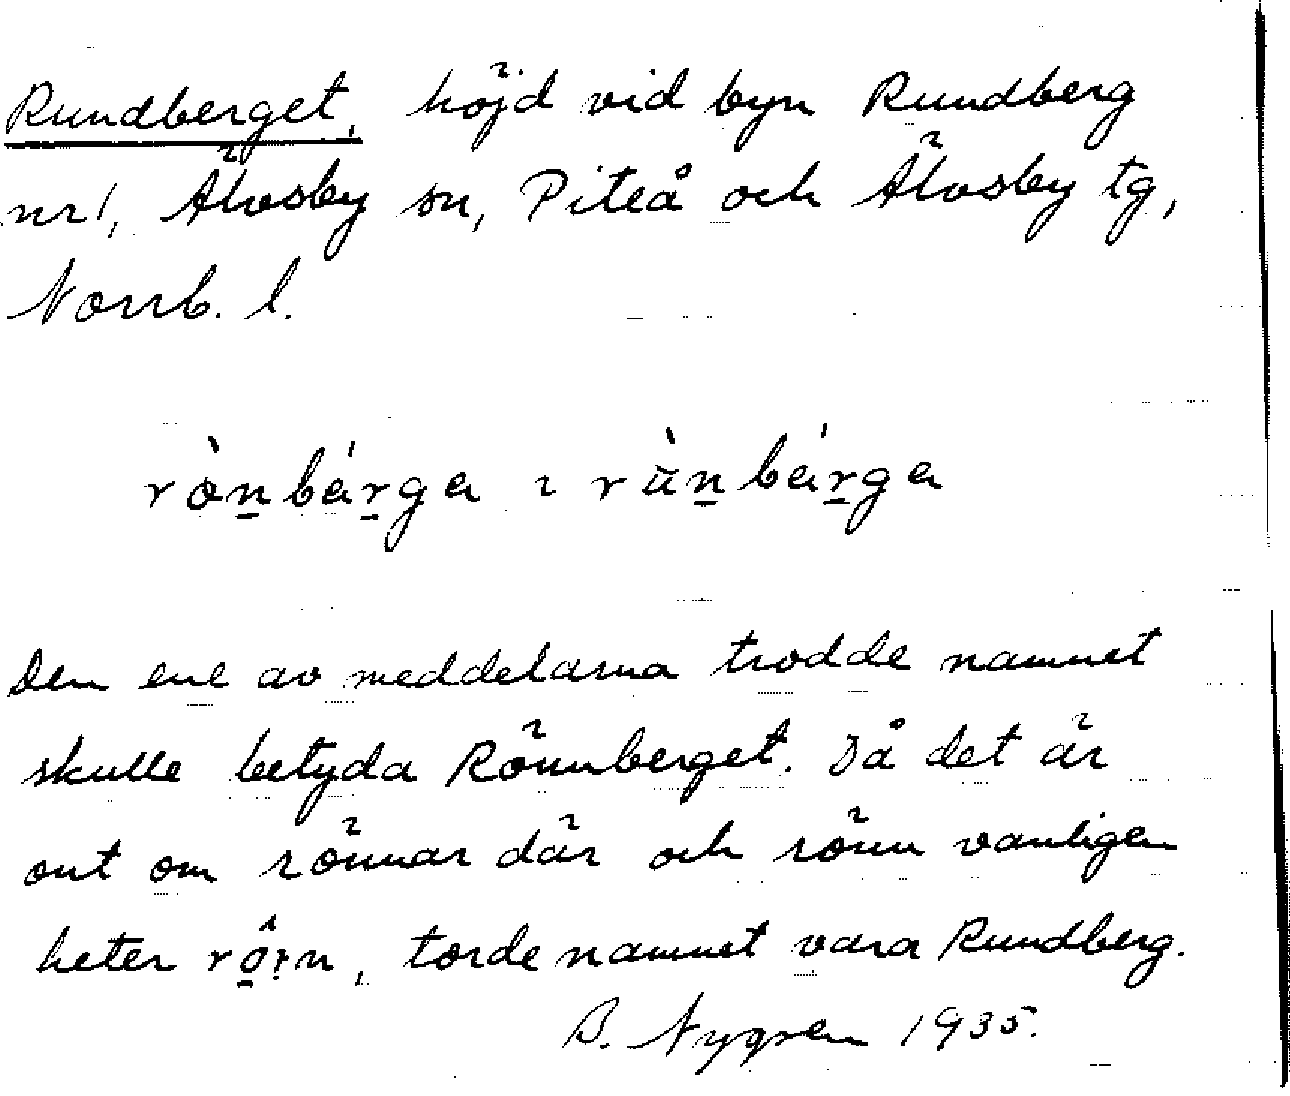 Rundberget, höjd vid byn Rundberg
nr 1, Älvsby sn, Piteå och Älvsby tg,
Norrb. l.
rònbárga ? rùnbárga
Den ene av meddelarna trodde namnet
skulle betyda Rönnberget. Då det är
ont om rönnar där och rönn vanligen
heter , torde namnet vara Rundberg.
B. Nygren 1935.